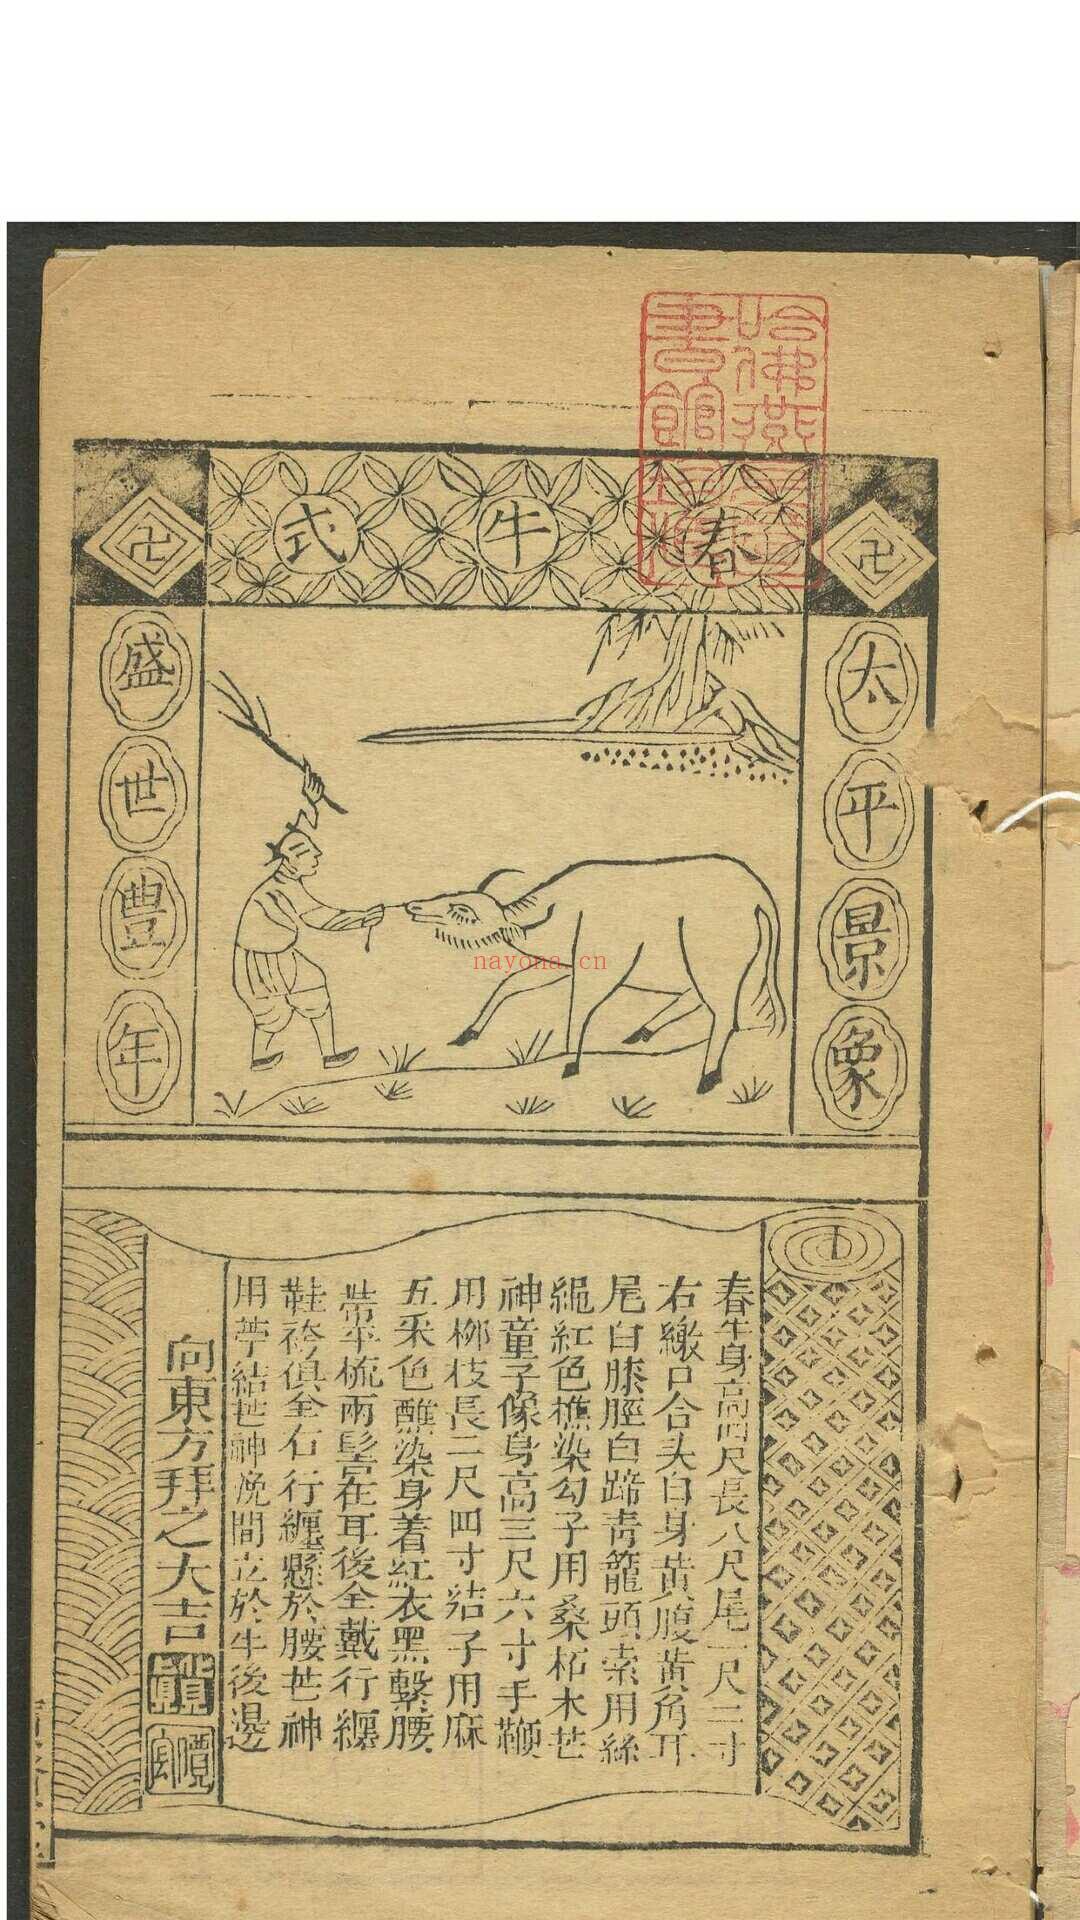 春牛式
太平景象
盛世豐年
nayona.cn
春牛身高四尺長八尺尾一尺二寸
右繳口合头白身黄腹黄角耳
尾白膝脛白蹄青籠頭索用絲
繩紅色樵染勾子用桑柘木芒
神童子像身高三尺六寸手鞭
用柳枝長二尺四寸结子用麻
五采色醮染身着紅衣黑繫腰
帶平梳兩髻在耳後全戴行纏
鞋袴俱全右行纏懸於腰芒神
用苧結芒神晚間立於牛後邊
向東方拜之大吉
哈佛燕
書館